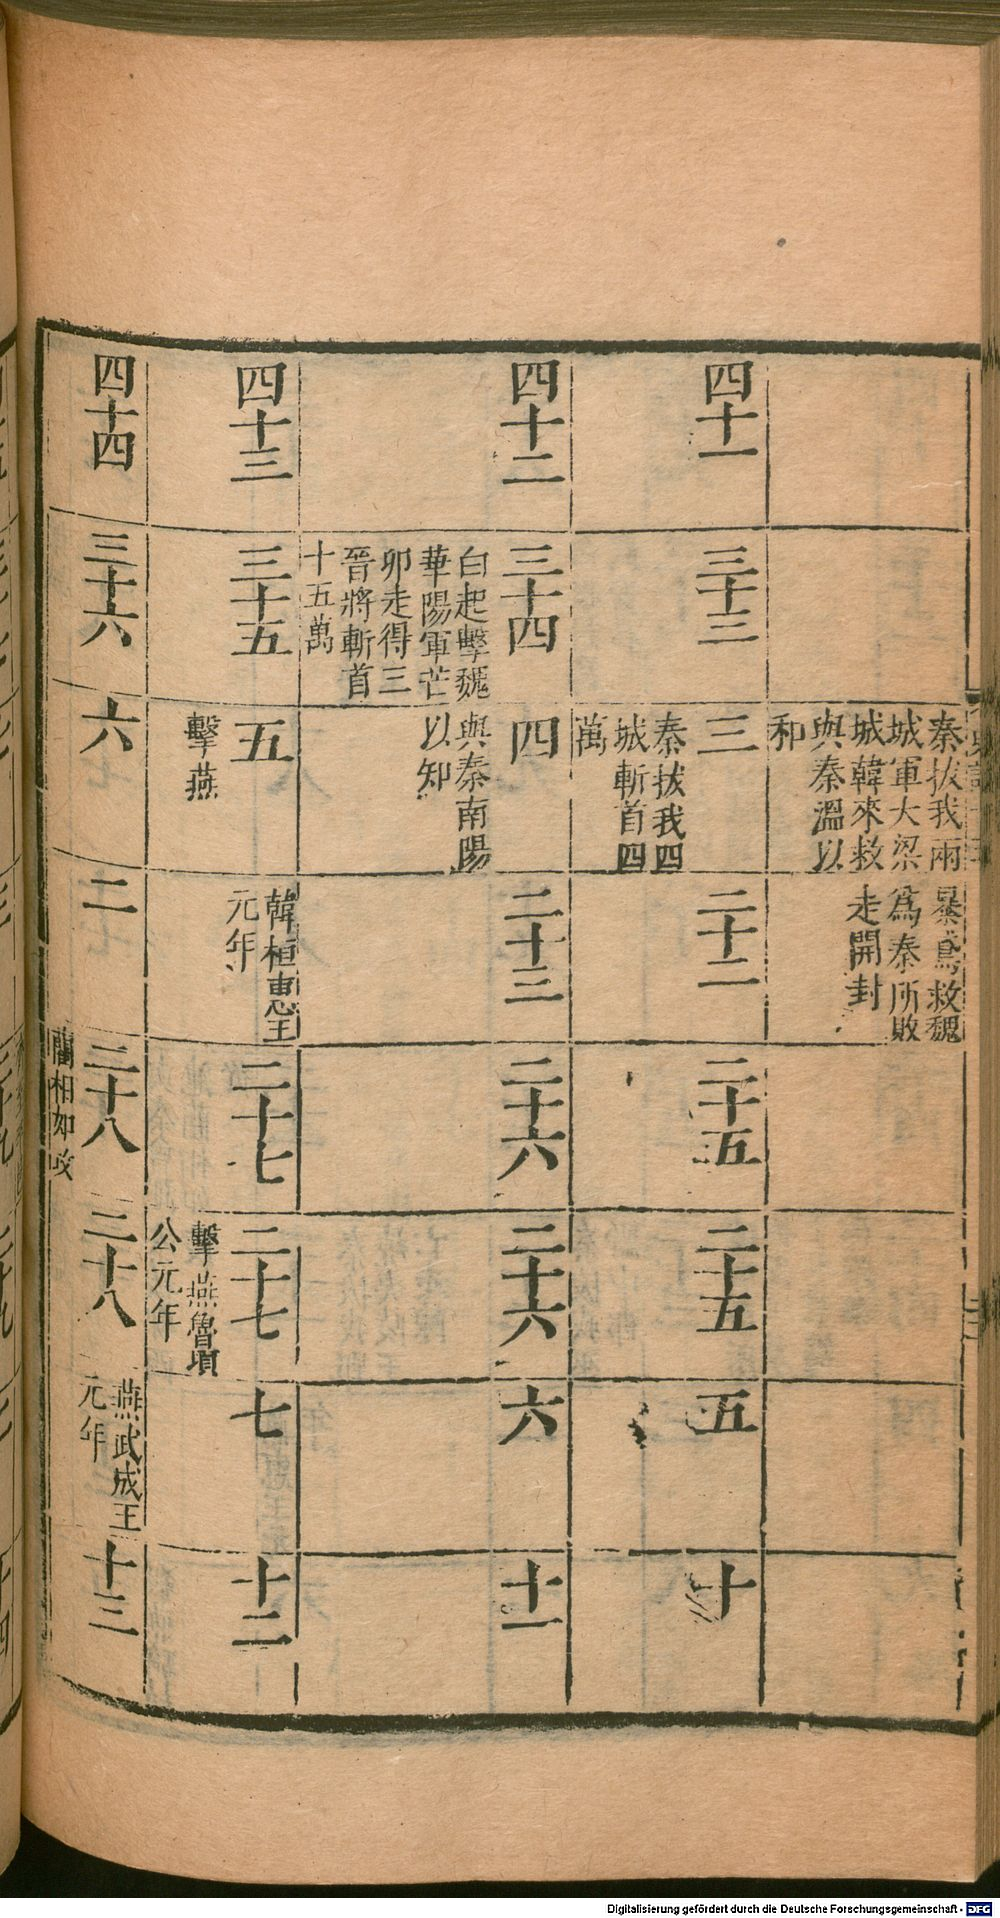 秦拔我兩
城軍大梁
城韓來救
與秦溫以
和
暴鳶救魏
爲秦所敗
走開封
四十一
三十三
三
秦拔我四
城斬首四
萬
二十二
二十五
二十五
五
十
四十二
三十四
白起擊魏
華陽軍芒
卯走得三
晉將斬首
十五萬
四
與秦南陽
以知
二十三
二十六
二十六
六
十一
四十三
三十五
五
擊燕
韓桓惠王
元年
二十七
二十七
擊燕魯頃
公元年
七
十二
四十四
三十六
六
二
二十八
藺相如攻
二十八
燕武成王
元年
十三
Digitalisierung gefördert durch die Deutsche Forschungsgemeinschaft - DFG